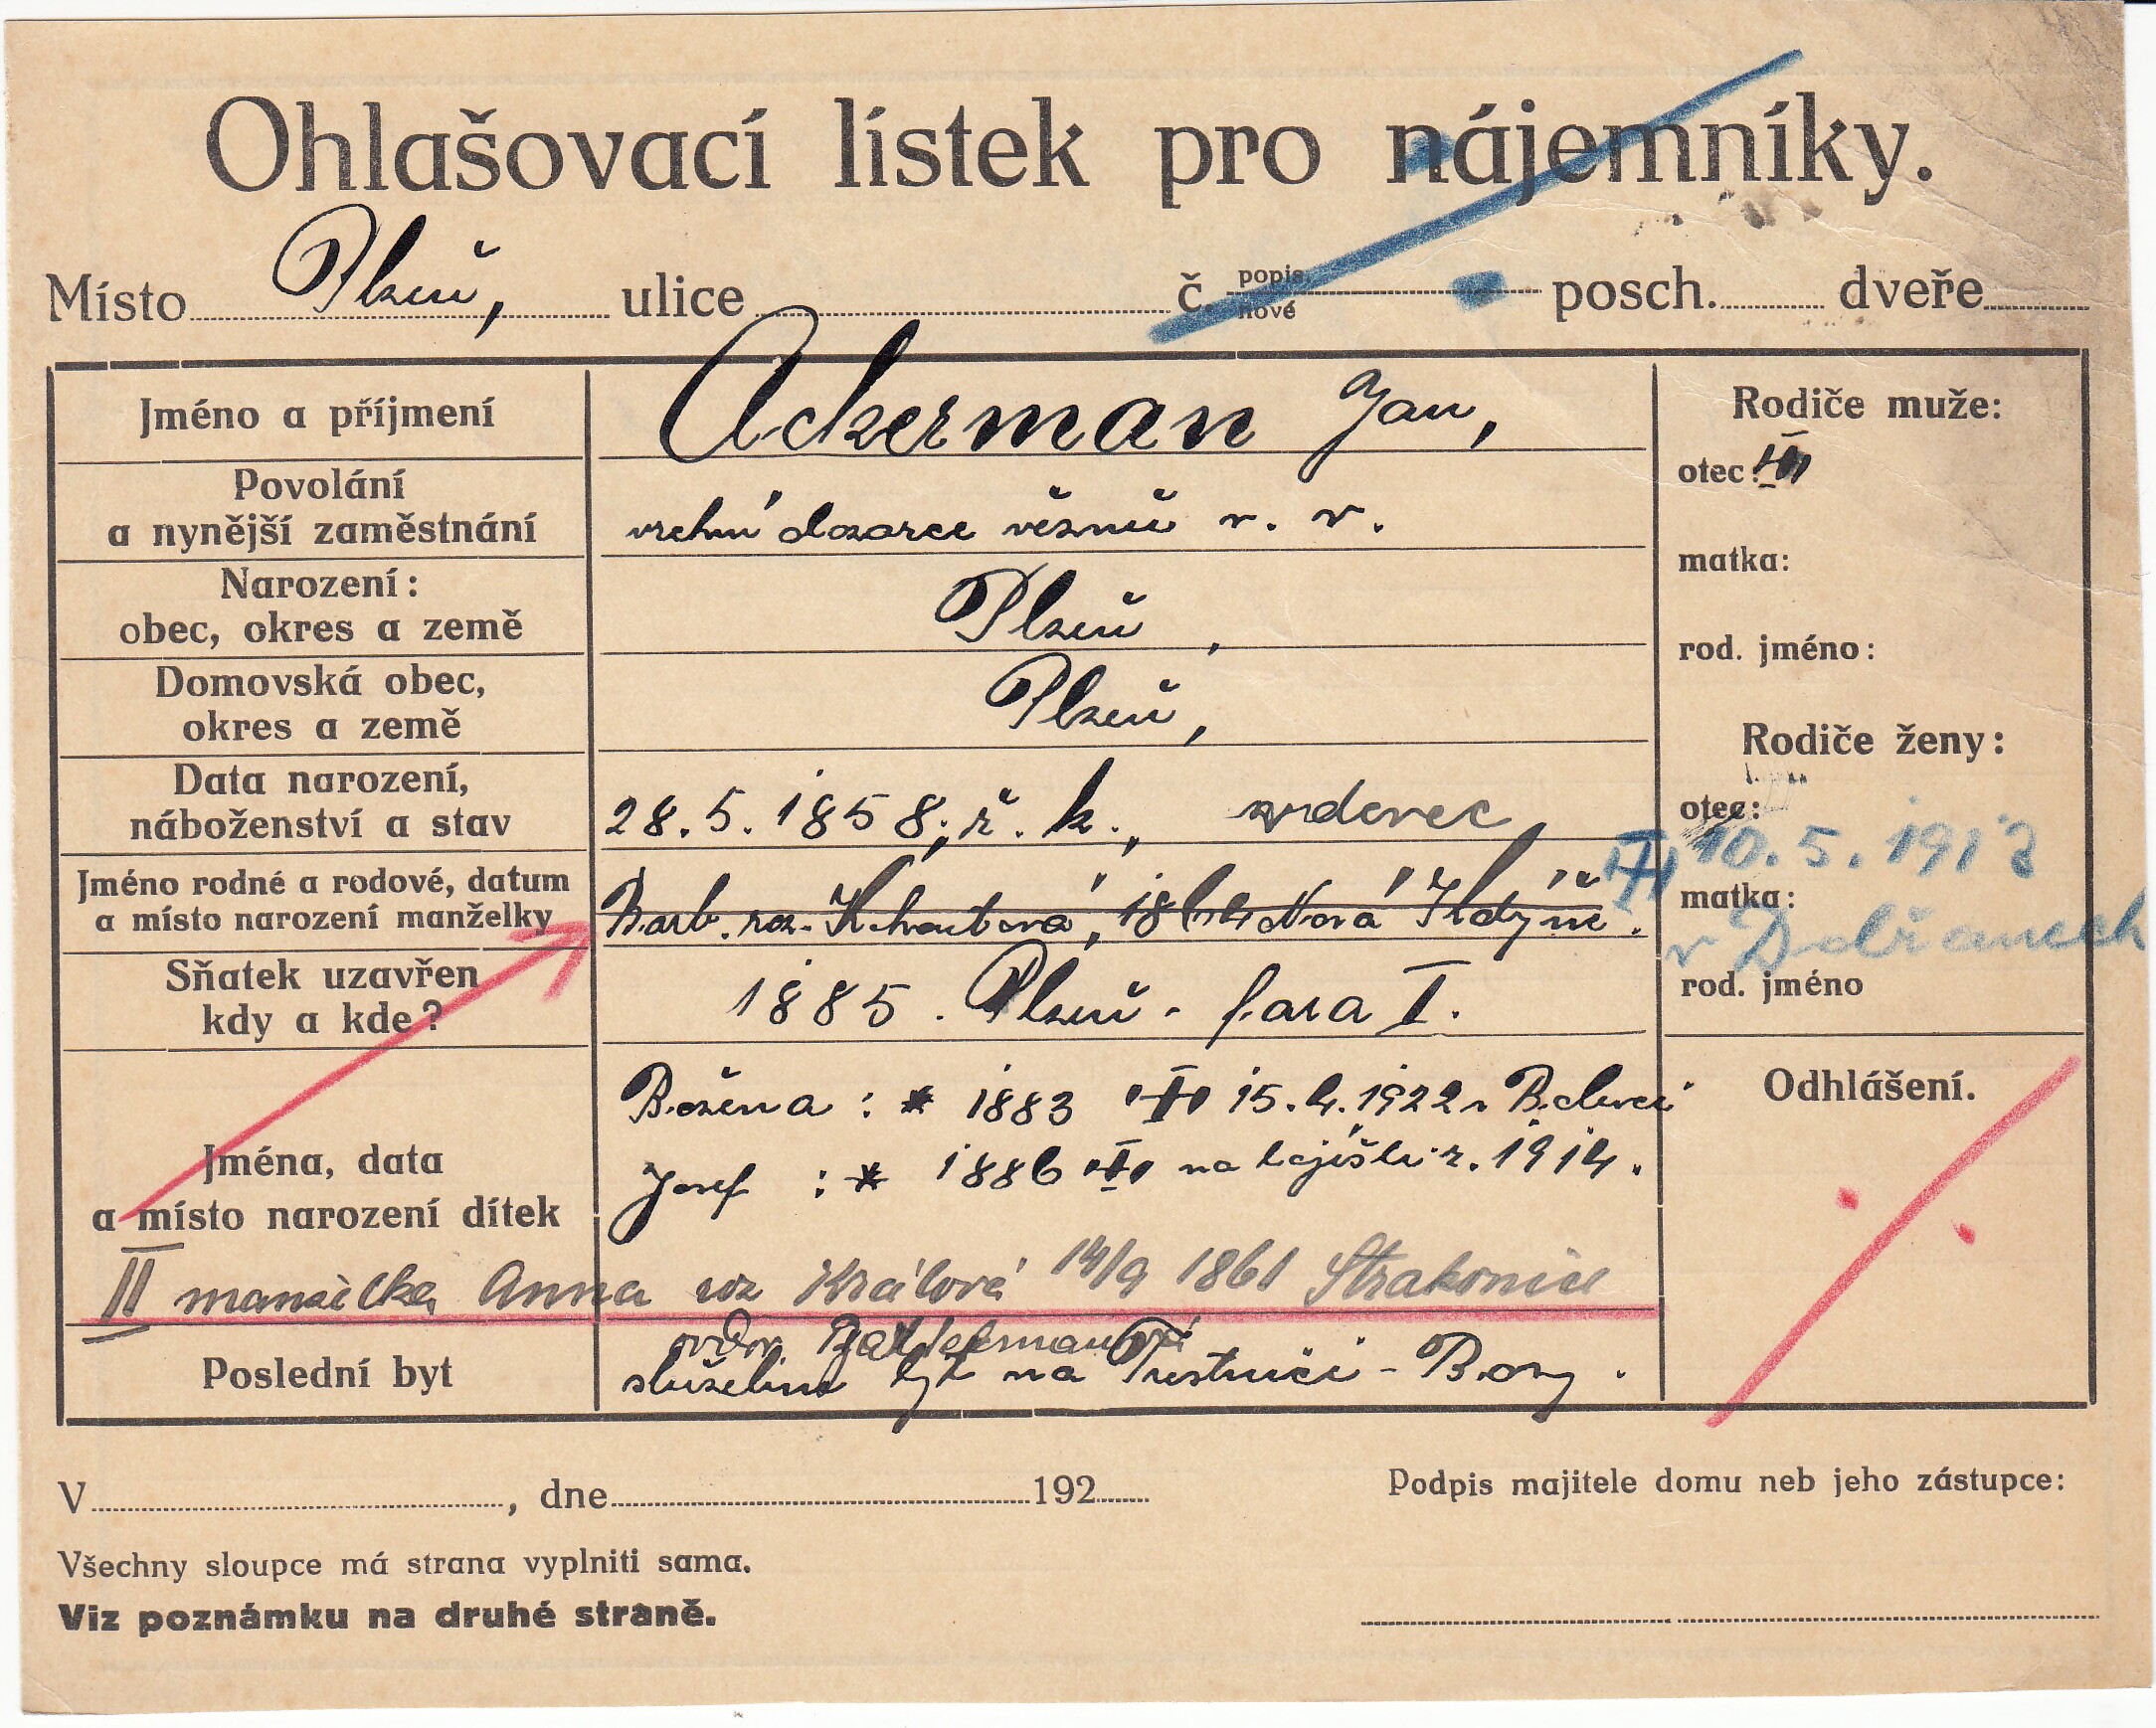 Ohlašovací lístek pro nájemníky.
Místo Plzeň, ulice č. popis. nové posch. dveře
Jméno a příjmení Ackerman Jan,
Povolání
a nynější zaměstnání vrchní dozorce věznů v. v.
Narození:
obec, okres a země Plzeň,
Domovská obec,
okres a země Plzeň,
Data narození,
náboženství a stav 28.5.1858, ř. k., vdovec
Jméno rodné a rodové, datum
a místo narození manželky Barb. roz. 1864 Nová Kdýně.
Sňatek uzavřen
kdy a kde? 1885. Plzeň - fara I.
Jména, data
a místo narození dítek
Božena : * 1883 15.4.1922 v Bolevci
Josef : * 1886 na bojišti r. 1914.
II manželka Anna roz Králová 14/9 1861 Strakonice
vdov.
Poslední byt služební byt na Trestnici - Bory.
Rodiče muže:
otec:
matka:
rod. jméno:
Rodiče ženy:
otec:
10.5.1913
matka:
v Dobřanech
rod. jméno
Odhlášení.
V , dne 192
Podpis majitele domu neb jeho zástupce:
Všechny sloupce má strana vyplniti sama.
Viz poznámku na druhé straně.